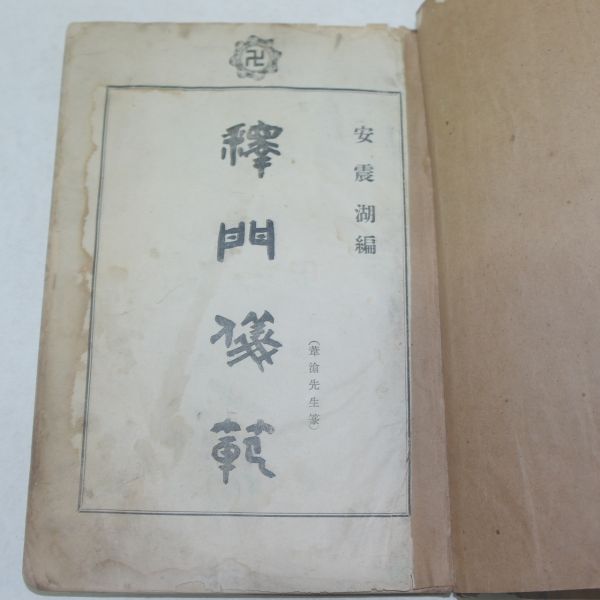 安震湖編
釋門儀範
(葦滄先生篆)